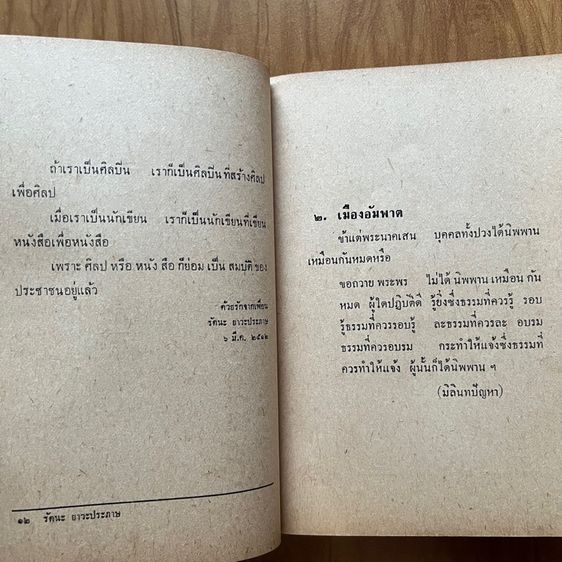 ถ้าเราเป็นศิลปิน เราก็เป็นศิลปิน ที่สร้างศิลป
เพื่อศิลป
เมื่อเราเป็นนักเขียน เราก็เป็นนักเขียนที่เขียน
หนังสือเพื่อหนังสือ
เพราะ ศิลป หรือ หนัง สือ ก็ย่อม เป็น สมบัติ ของ
ประชาชนอยู่แล้ว
ด้วยรักจากเพื่อน
รัตนะ ยาวะประภาษ
๖ มี.ค. ๒๕๑๒
๑๒ รัตนะ ยาวะประภาษ
๒. เมืองอัมพาต
ข้าแต่พระนาคเสน บุคคลทั้งปวงได้นิพพาน
เหมือนกันหมดหรือ
ขอถวาย พระพร ไม่ได้ นิพพาน เหมือน กัน
หมด ผู้ใดปฏิบัติดี รู้ยิ่งซึ่งธรรมที่ควรรู้ รอบ
รู้ธรรมที่ควรรอบรู้ ละธรรมที่ควรละ อบรม
ธรรมที่ควรอบรม กระทำให้แจ้งซึ่งธรรมที่
ควรทำให้แจ้ง ผู้นั้นก็ได้นิพพาน ฯ
(มิลินทปัญหา)